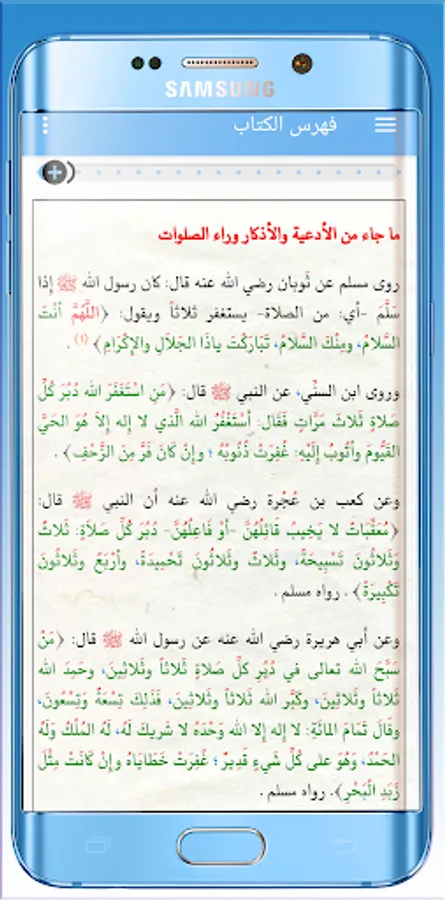 SAMSUNG
فهرس الكتاب
ما جاء من الأدعية والأذكار وراء الصلوات
روى مسلم عن ثوبان رضي الله عنه قال: كان رسول الله ﷺ إذا
سَلَّمَ -أي: من الصلاة- يستغفر ثلاثاً ويقول: ﴿اللَّهُمَّ أَنْتَ
السَّلامُ، ومِنْكَ السَّلامُ، تَبَارَكْتَ ياذَا الجَلاَلِ والإِكْرَامِ﴾ (1) .
وروى ابن السنِّي، عن النبي ﷺ قال: ﴿مَنِ اسْتَغْفَرَ الله دُبُرَ كُلِّ
صَلاَةٍ ثَلاثَ مَرَّاتٍ فَقَالَ: أسْتَغْفُرُ الله الَّذي لا إله إلاَّ هُوَ الحَيَّ
القَيُّومَ وأتُوبُ إلَيْهِ: غُفِرَتْ ذُنُوبُهُ ؛ وإنْ كَانَ فَرَّ مِنَ الزَّحْفِ﴾ .
وعن كعب بن عُجْرة رضي الله عنه أن النبي ﷺ قال:
﴿مُعَقِّبَاتٌ لا يَخِيبُ قَائِلُهُنَّ -أوْ فَاعِلُهُنَّ- دُبُرَ كُلِّ صَلاَةٍ: ثَلاَثٌ
وَثَلاَثُونَ تَسْبِيحَةً، وثَلاثٌ وثَلاَثُونَ تَحْمِيدَةً، وأرْبَعٌ وثَلاثُونَ
تَكْبِيرَةً﴾ . رواه مسلم .
وعن أبي هريرة رضي الله عنه عن رسول الله ﷺ قال: ﴿مَنْ
سَبَّحَ الله تعالى في دُبُرِ كلِّ صَلاَةٍ ثَلاثاً وثَلاثِينَ، وحَمِدَ الله
ثَلاثاً وثَلاثِينَ، وكَبَّر الله ثَلاثاً وثَلاثِينَ، فَذَلِكَ تِسْعَةٌ وَتِسْعُونَ،
وقالَ تَمَامَ المائَةِ: لا إله إلا الله وَحْدَهُ لا شريكَ لَهُ، لَهُ المُلْكُ وَلَهُ
الحَمْدُ، وَهُوَ على كُلِّ شَيءٍ قَدِيرٌ ؛ غُفِرَتْ خَطَايَاهُ وإنْ كَانَتْ مِثْلَ
زَبَدِ الْبَحْرِ﴾. رواه مسلم .